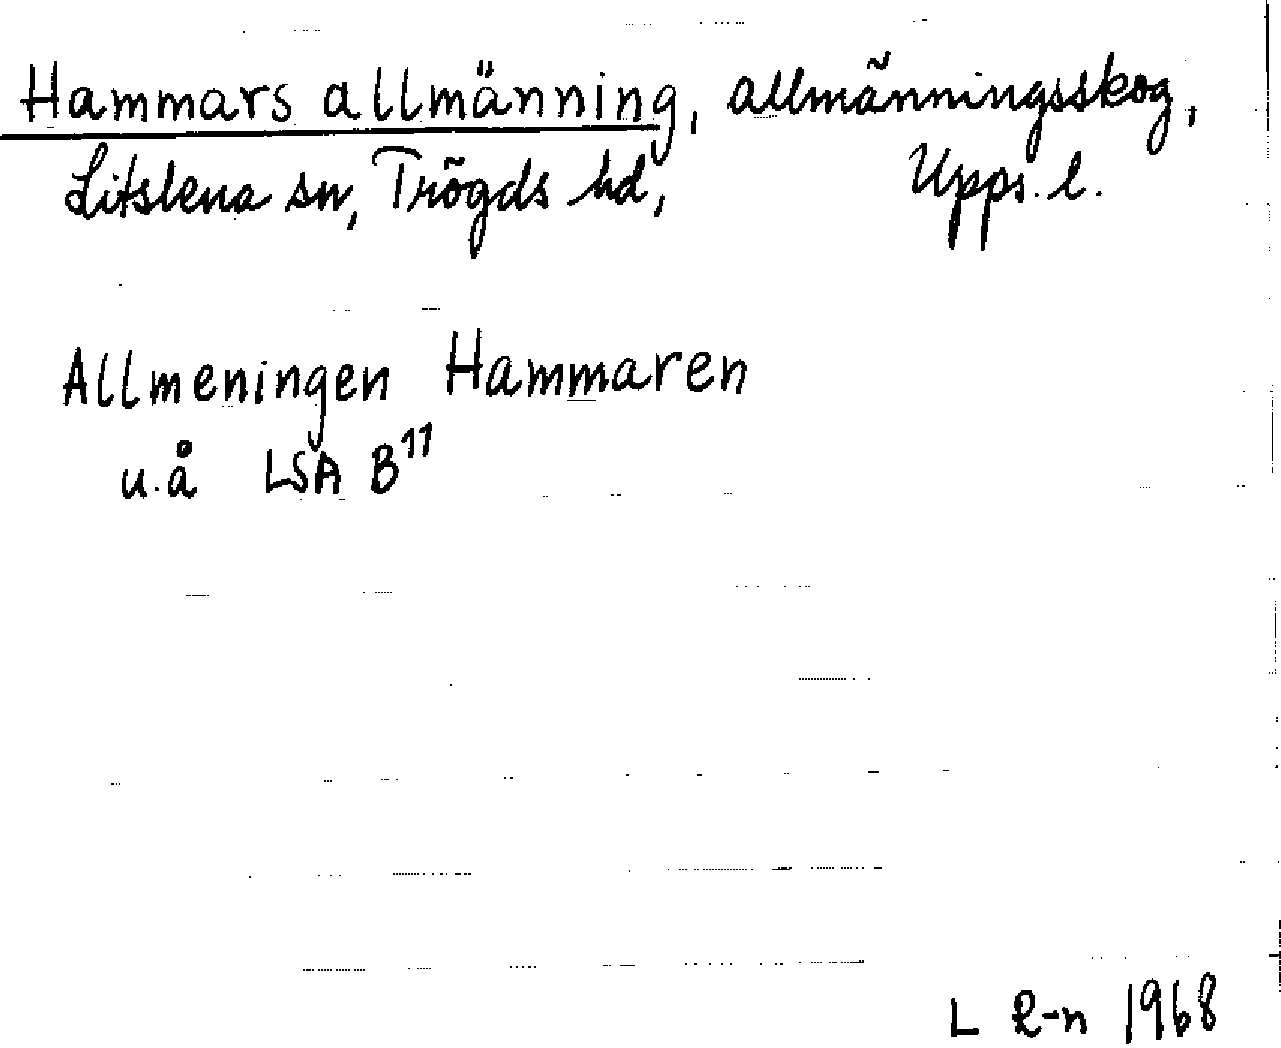 Hammars allmänning, allmänningsskog,
Litslena sn, Trögds hd, Upps. l.
Allmeningen Hammaren
u.å LSA B11
L R-n 1968